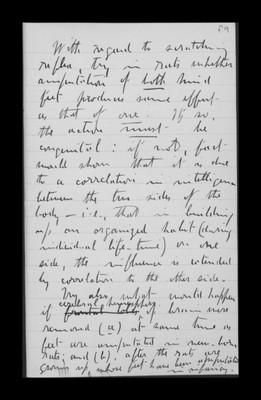 59
With regard to scratching
reflex, try in rats whether
amputation of both hind
feet produces same effect
as that of one. If so,
the action must be
congenital: if not, fact
would show that it is due
to a correlation in intelligence
between the two sides of the
body — i.e., that in building
up an organized habit (during
individual life-time) on one
side, the influence is extended
by correlation to the other side.
Try also, what would happen
if cerebral hemispheres of brain were
removed (a) at same time as
feet are amputated in new-born
rats; and (b), after the rats are
grown up, whose feet have been amputated
in infancy.